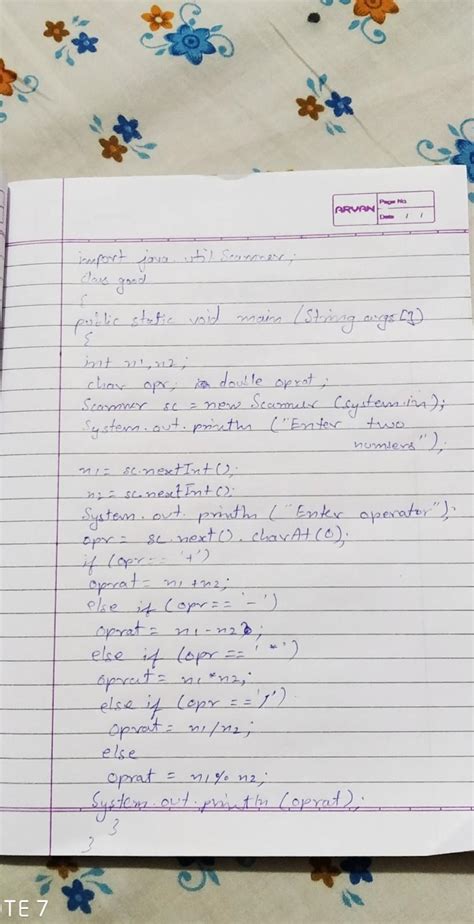 ARVAN
Page No.
Date / /
import java.util Scanner;
class good
{
public static void main (String args[])
{
int n1,n2;
char opr, double oprat;
Scanner sc = new Scanner (system.in);
System.out.println ("Enter two
numbers");
n1= sc.nextInt();
n2= sc.nextInt();
System.out.println ("Enter operator");
opr = sc.next().charAt(0);
if (opr == '+')
oprat = n1+n2;
else if (opr == '-')
oprat = n1-n2;
else if (opr == '*')
oprat = n1*n2;
else if (opr == '/')
oprat = n1/n2;
else
oprat = n1%n2;
System.out.println (oprat);
}
}
TE 7